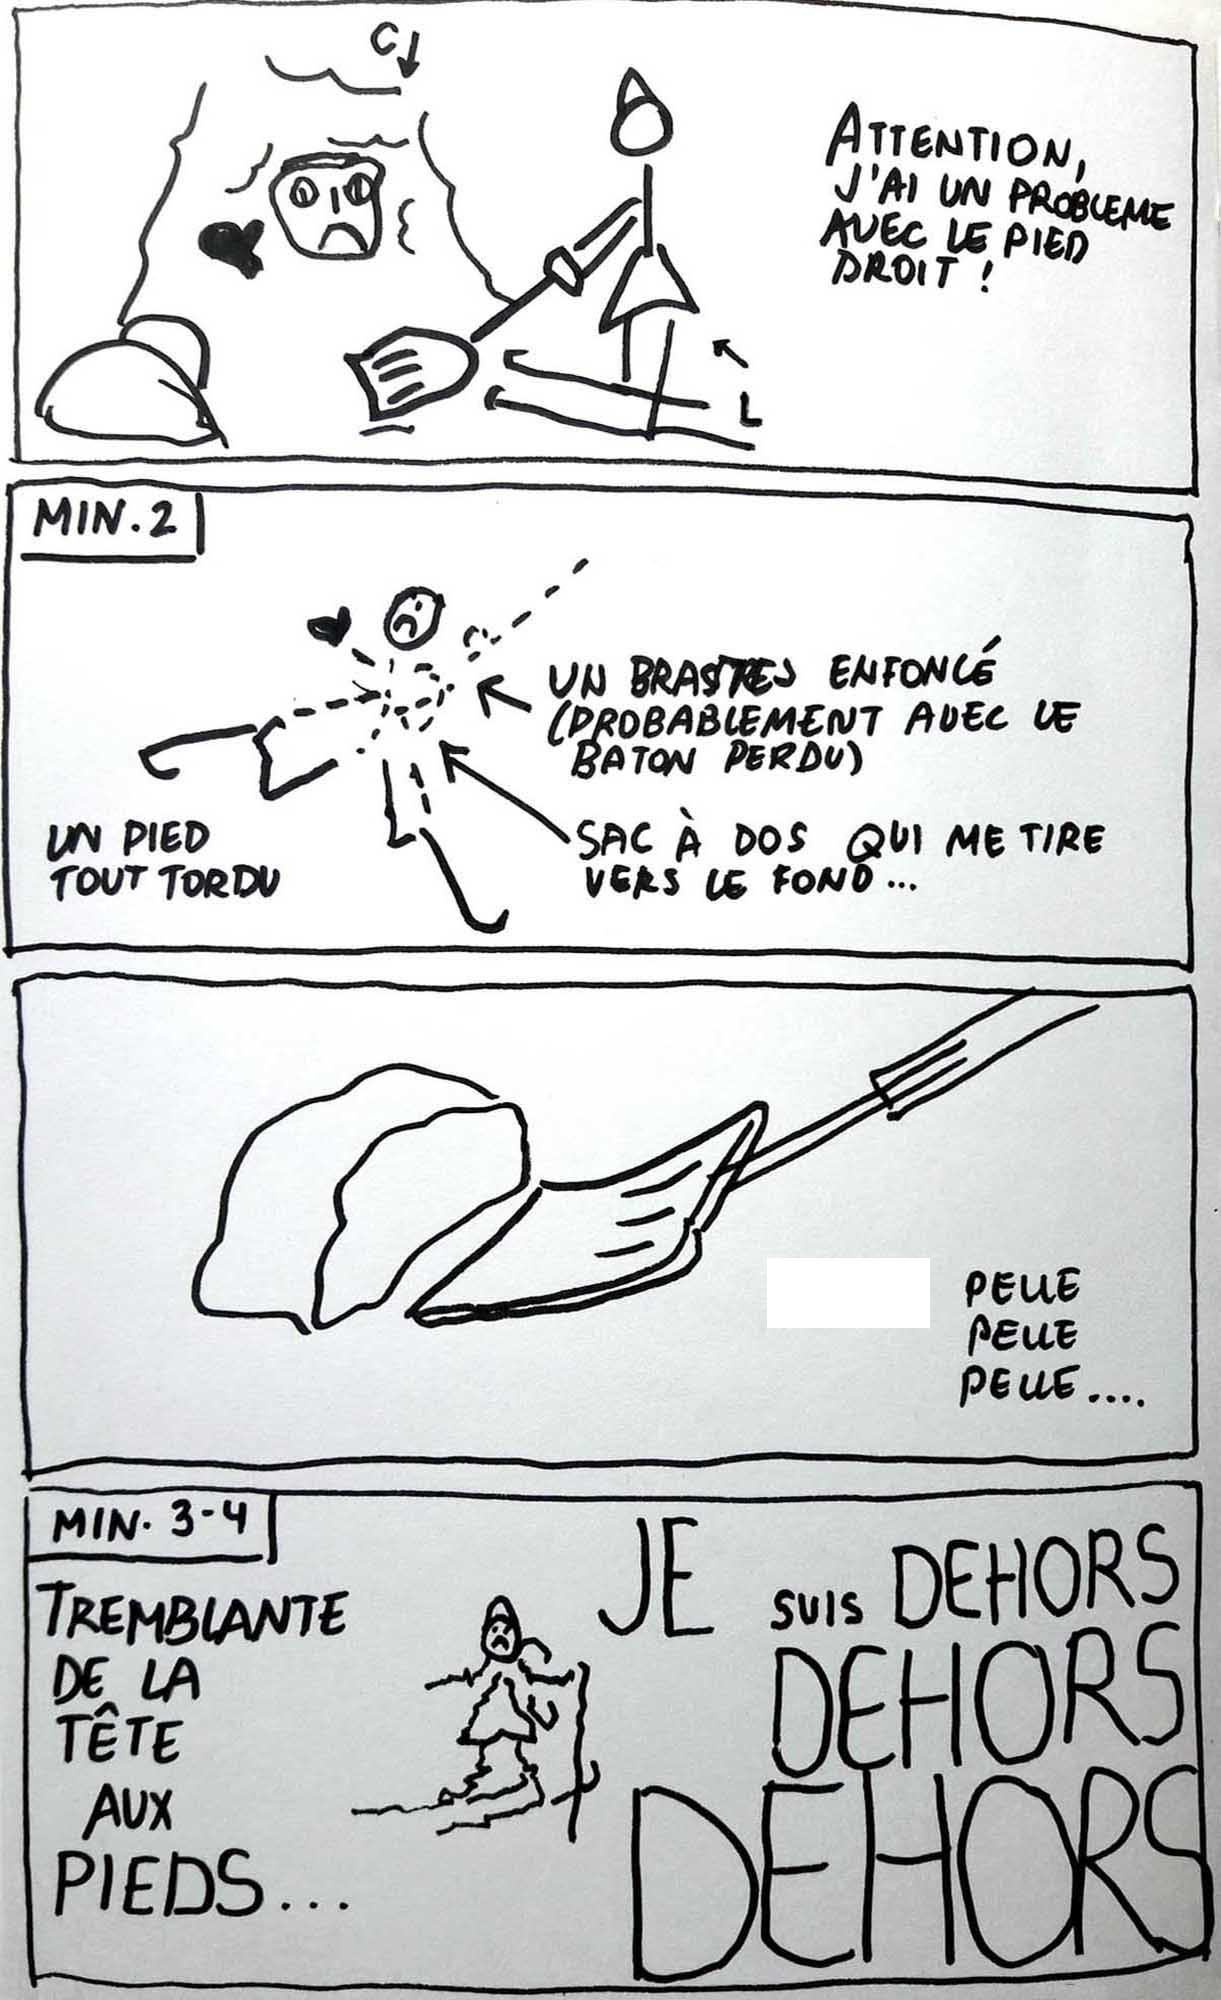 C
ATTENTION,
J'AI UN PROBLEME
AVEC LE PIED
DROIT !
L
MIN.2
UN BRAS TRES ENFONCÉ
(PROBABLEMENT AVEC LE
BATON PERDU)
UN PIED
TOUT TORDU
SAC À DOS QUI ME TIRE
VERS LE FOND...
PELLE
PELLE
PELLE....
MIN. 3-4
TREMBLANTE
DE LA
TÊTE
AUX
PIEDS...
JE SUIS DEHORS
DEHORS
DEHORS